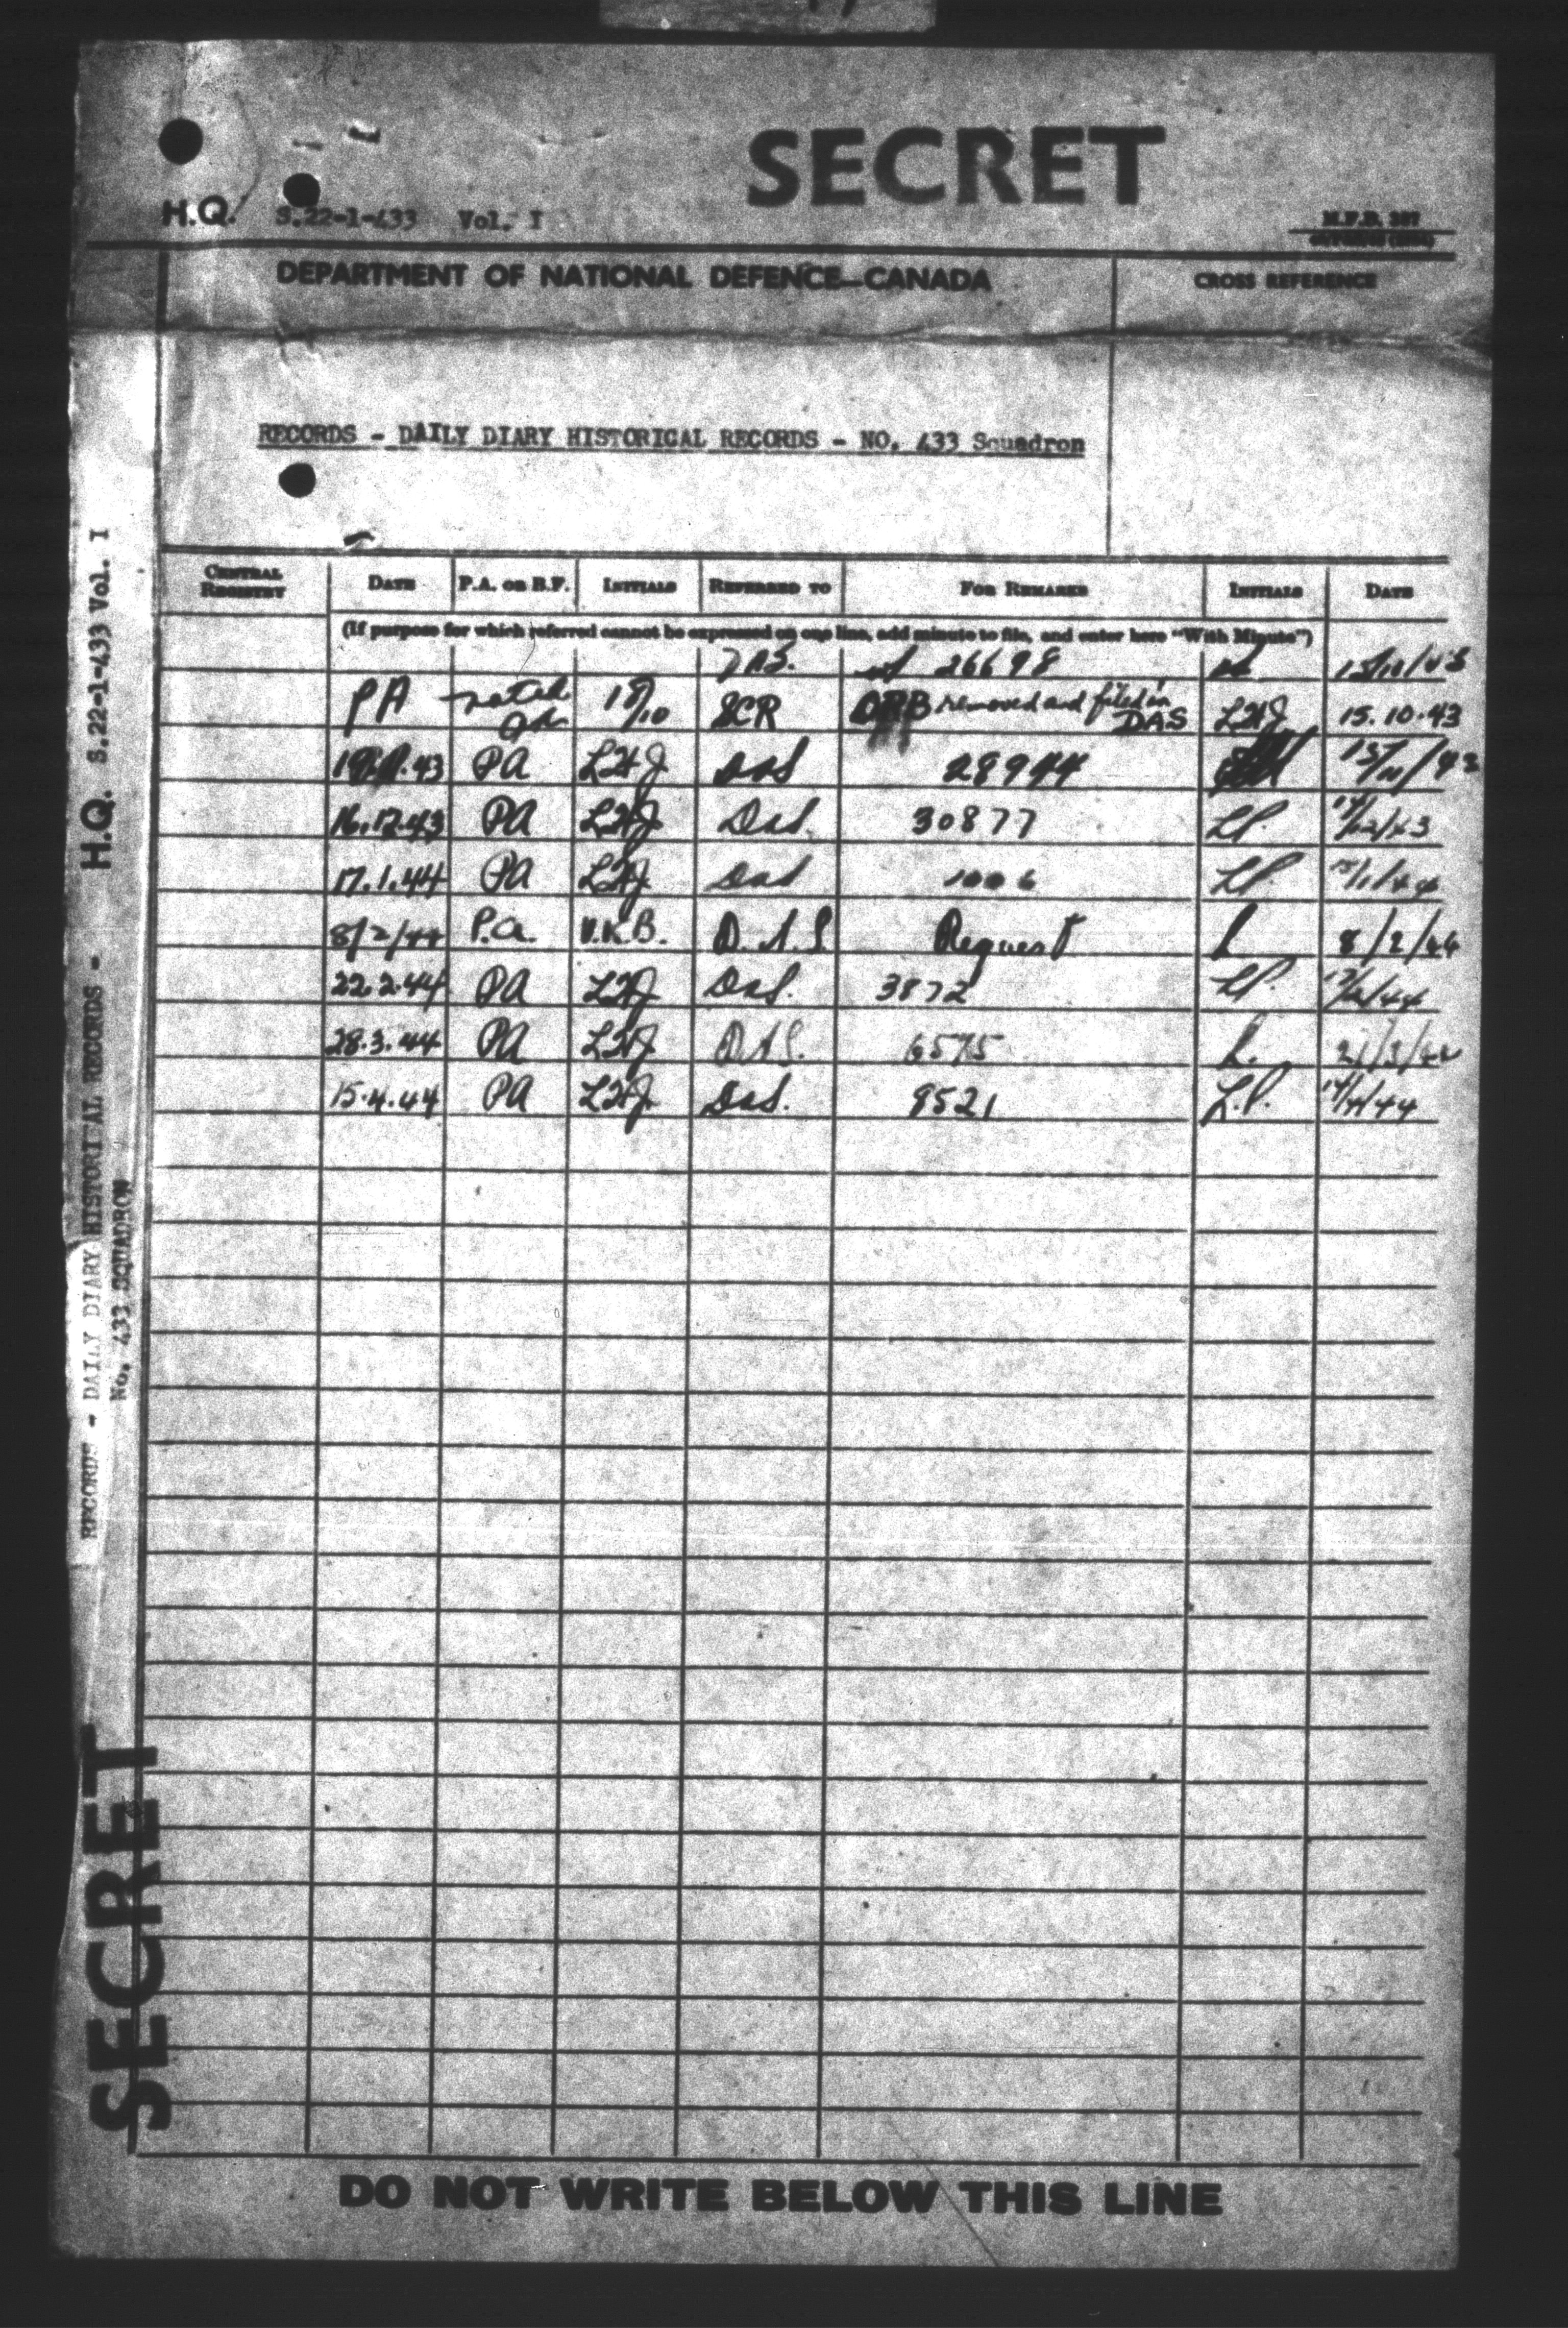 SECRET
H.Q. S.22-1-433 Vol. I
DEPARTMENT OF NATIONAL DEFENCE—CANADA
CROSS REFERENCE
RECORDS - DAILY DIARY HISTORICAL RECORDS - NO. 433 Squadron
CENTRAL REGISTRY DATE P.A. OR B.F. INITIALS REFERRED TO FOR REMARKS INITIALS DATE
(If purpose for which referred cannot be expressed on one line, add minute to file, and enter here "With Minute")
DAS. 26698
PA noted 18/10 SCR ORB removed and filed in DAS LHJ 15.10.43
PA LHJ DAS 28944
16.12.43 PA LHJ DAS. 30877 LP.
17.1.44 PA LHJ DAS 1006 LP.
8/2/44 P.A. V.K.B. D.A.S Request L 8/2/44
22.2.44 PA LHJ DAS. 3872 LP.
28.3.44 PA LHJ DAS. 6575 L. 21/3/44
15.4.44 PA LHJ DAS. 8521 L.P. 14/4/44
DO NOT WRITE BELOW THIS LINE
H.Q. S.22-1-433 Vol. I
RECORDS - DAILY DIARY HISTORICAL RECORDS -
No. 433 SQUADRON
SECRET